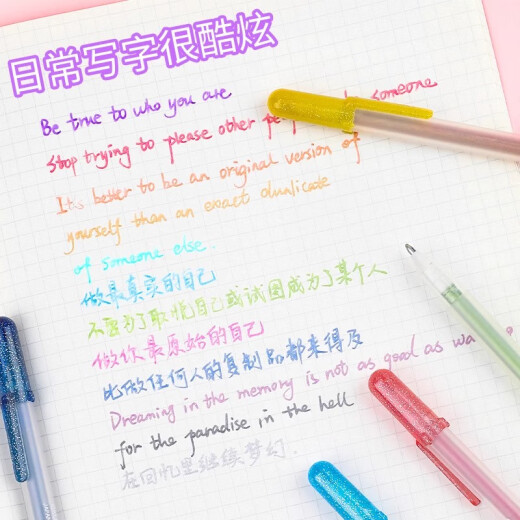 日常写字很酷炫
Be true to who you are
Stop trying to please other someone
It's better to be an original version of
yourself than an exact dunlicate
of someone else.
做最真实的自己
不要为了取悦自己或试图成为了某个人
做你最原始的自己
比做任何人的复制品都来得及
Dreaming in the memory is not as good as
for the paradise in the hell
在回忆里继续梦幻.